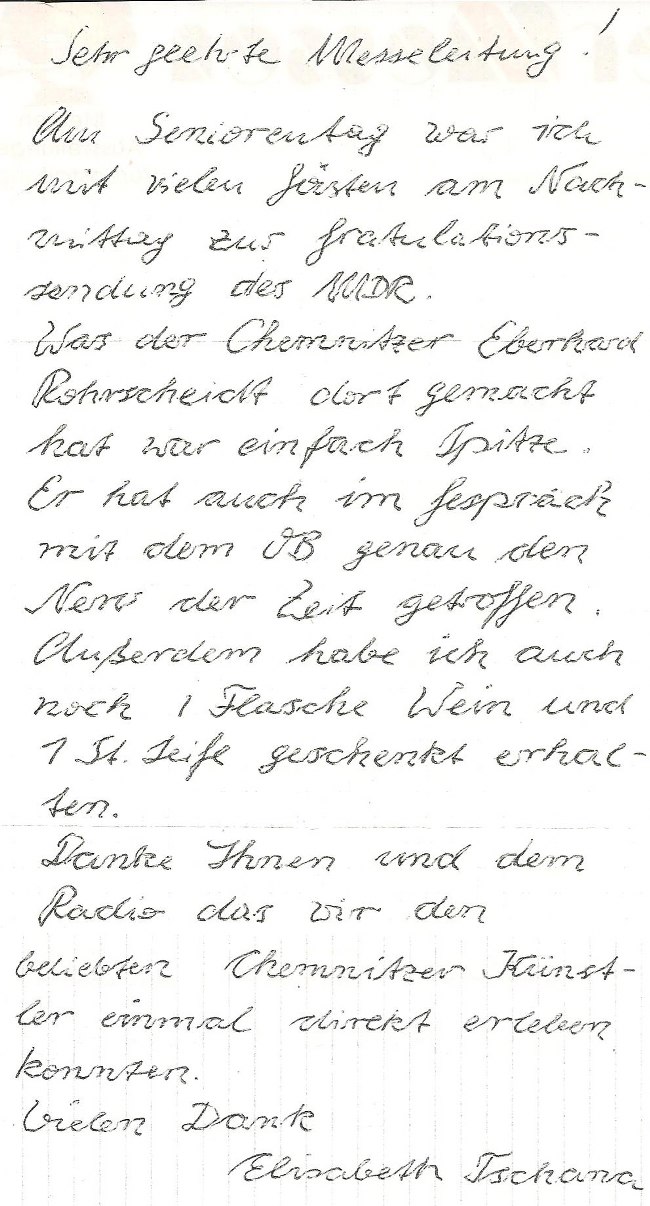 Sehr geehrte Messeleitung!
Am Seniorentag war ich
mit vielen Gästen am Nach-
mittag zur Gratulations-
sendung des MDR.
Was der Chemnitzer Eberhard
Rohrscheidt dort gemacht
hat war einfach Spitze.
Er hat auch im Gespräch
mit dem OB genau den
Nerv der Zeit getroffen.
Außerdem habe ich auch
noch 1 Flasche Wein und
1 St. Seife geschenkt erhal-
ten.
Danke Ihnen und dem
Radio das wir den
beliebten Chemnitzer Künst-
ler einmal direkt erleben
konnten.
Vielen Dank
Elisabeth